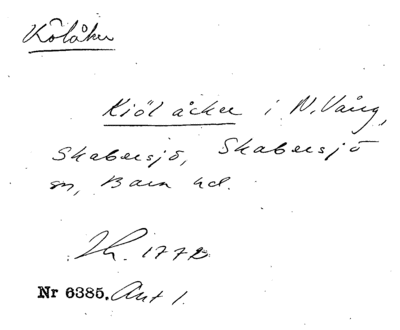 Kölåker
Kiöl åcker i N. Vång,
Skabersjö, Skabersjö
sn, Bara hd.
Lh. 1772
Nr 6385. Akt 1.